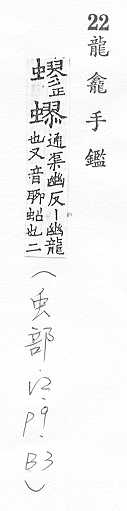 22 龍龕手鑑
正蟉通渠幽反丨幽龍
也又音聊蛁也二
(虫部.12.P9.B3)